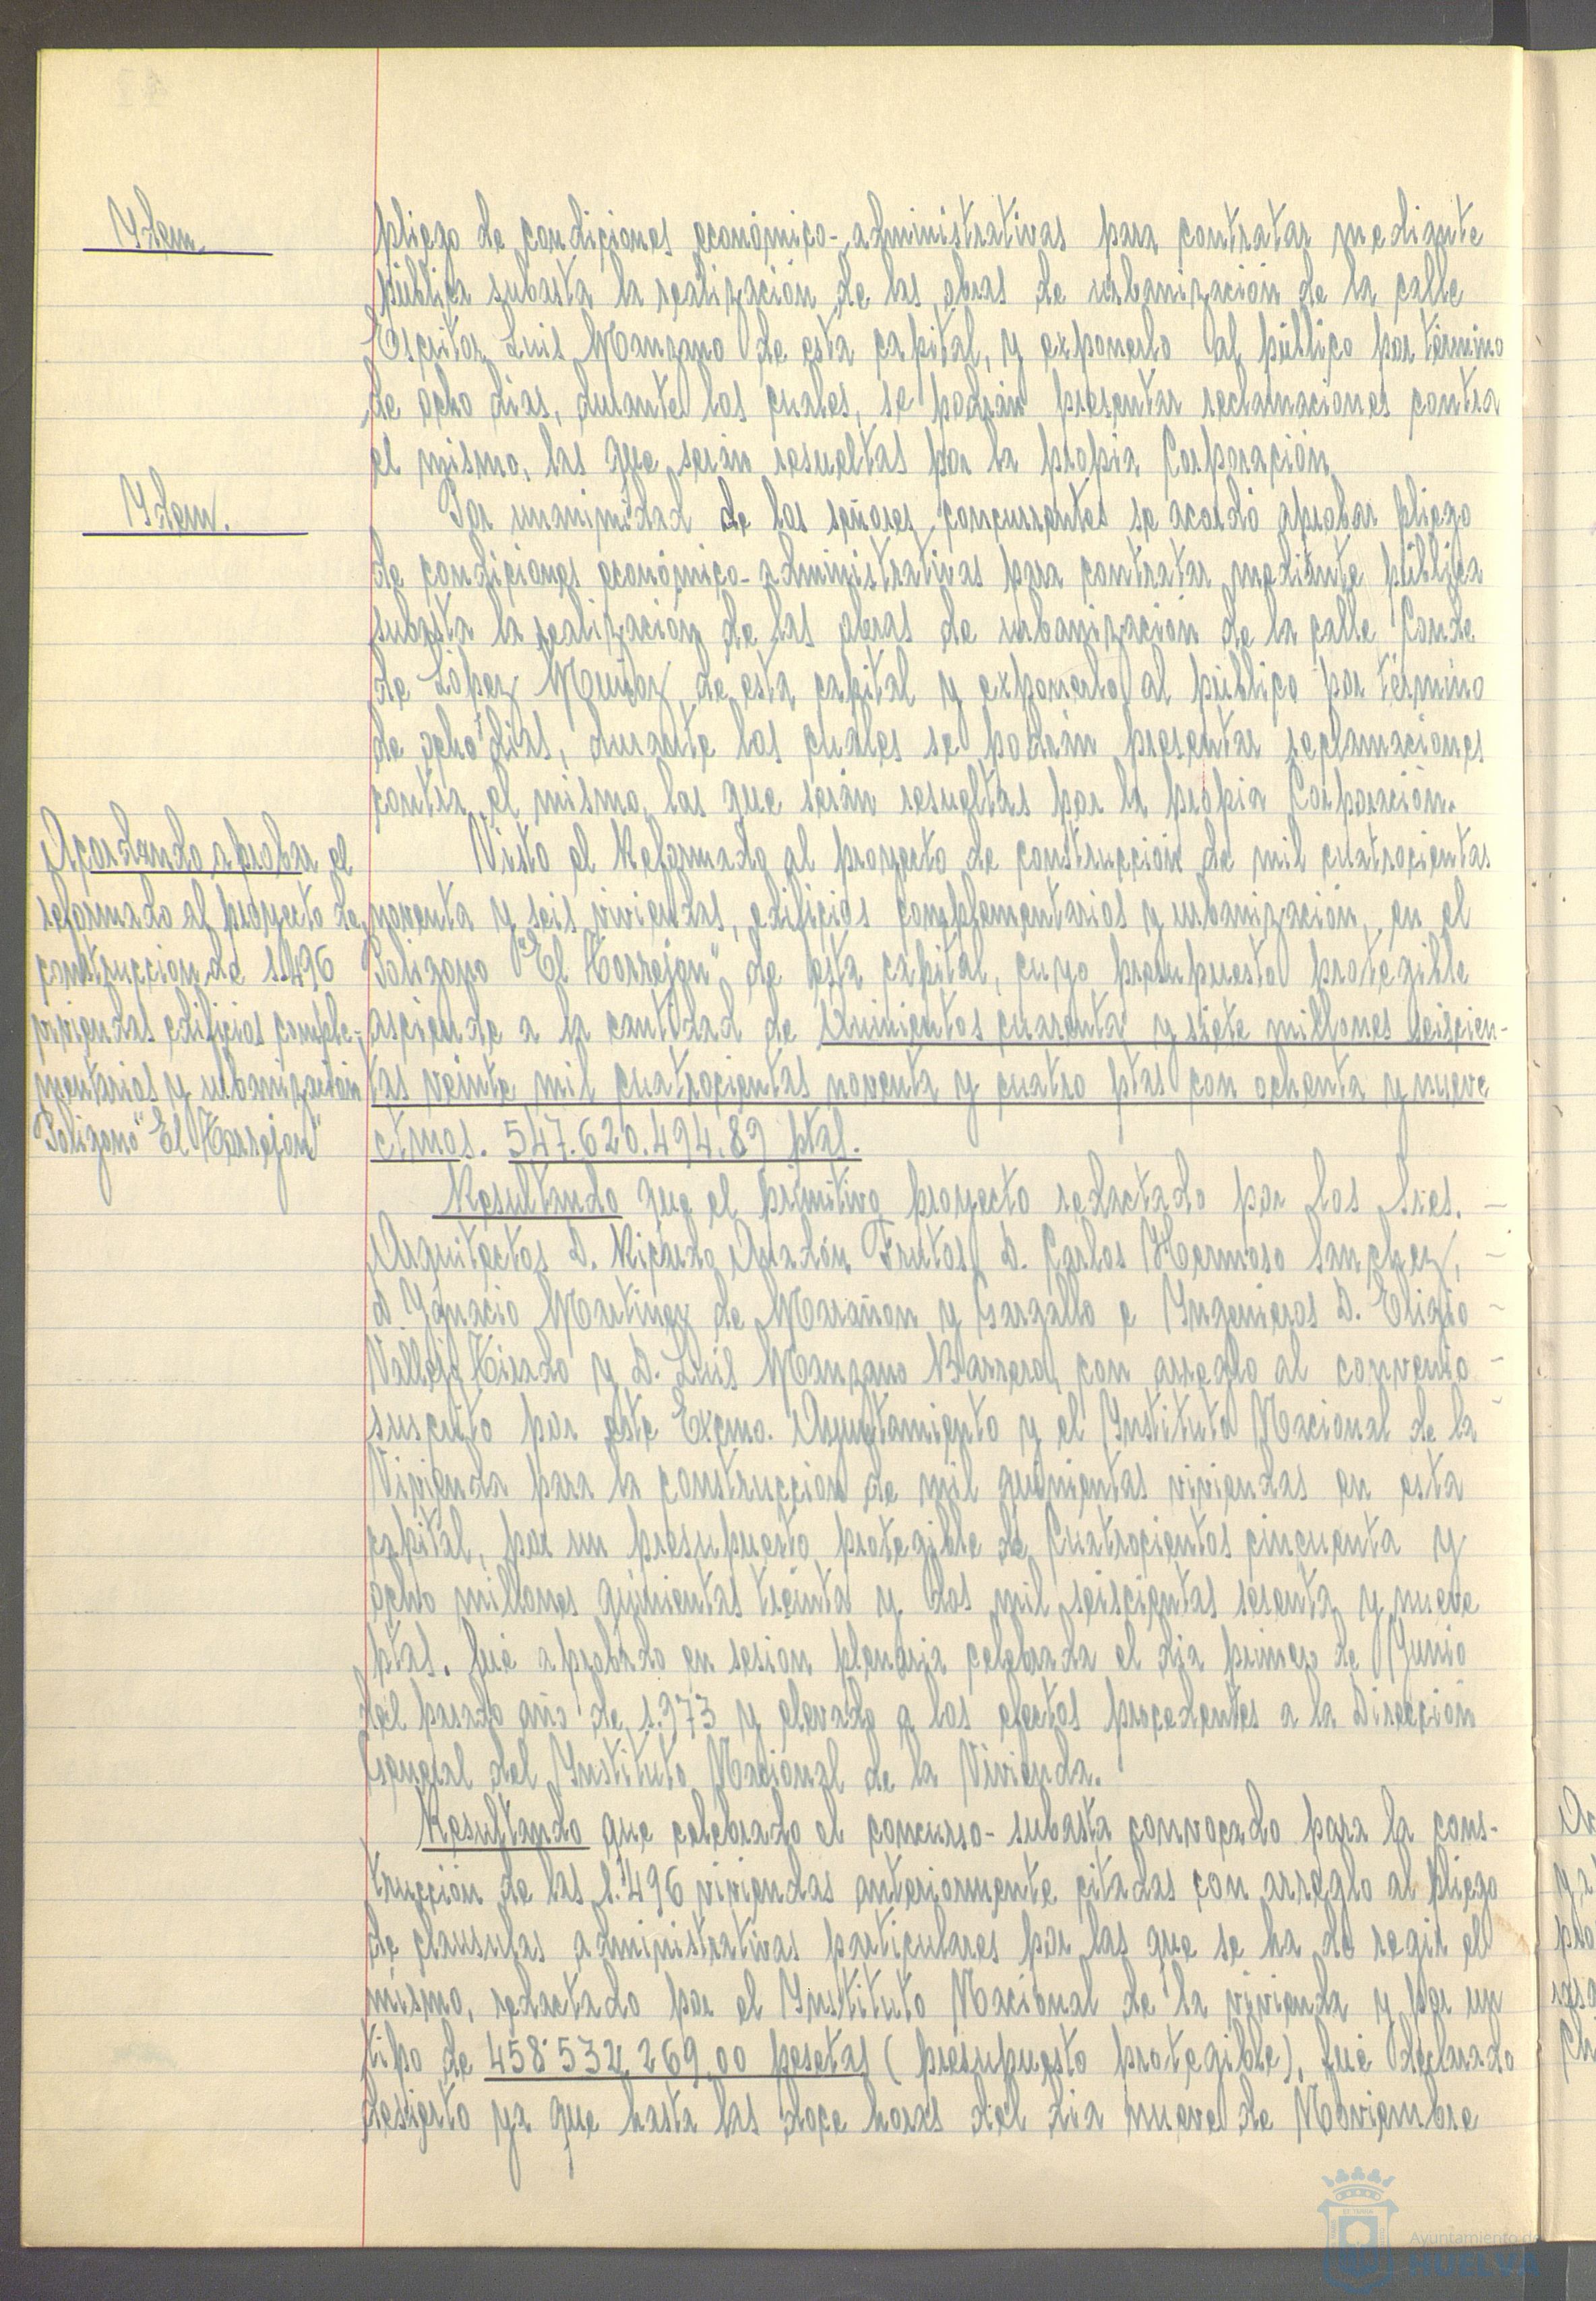 Ydem
pliego de condiciones económico-administrativas para contratar mediante
pública subasta la realización de las obras de urbanización de la calle
Escritor Luis Manzano de esta capital, y exponerlo al público por término
de ocho dias, durante los cuales, se podrán presentar reclamaciones contra
el mismo, las que serán resueltas por la propia Corporación
Ydem.
Por unanimidad de los señores concurrentes se acordó aprobar pliego
de condiciones económico-administrativas para contratar mediante pública
subasta la realización de las obras de urbanización de la calle Conde
de López Muñoz, de esta capital y exponerlo al público por término
de ocho dias, durante los cuales se podrán presentar reclamaciones
contra el mismo, las que serán resueltas por la propia Corporación.
Acordando aprobar el
reformado al proyecto de
construccion de 1.496
viviendas edificios comple-
mentarios y urbanización
Poligono "El Torrejon"
Visto el Reformado al proyecto de construcción de mil cuatrocientas
noventa y seis viviendas, edificios complementarios y urbanización, en el
Poligono "El Torrejon", de esta capital, cuyo presupuesto protegible
asciende a la cantidad de Quinientos cuarenta y siete millones seiscien-
tas veinte mil cuatrocientas noventa y cuatro ptas con ochenta y nueve
ctmos. 547.620.494,89 ptas.
Resultando que el primitivo proyecto redactado por los Sres.
Arquitectos D. Ricardo Anadón Frutos, D. Carlos Hermoso Sanchez,
D. Ygnacio Martinez de Marañon y Gargallo e Yngenieros D. Eligio
Vallejo Tirado y D. Luis Manzano Barrero, con arreglo al convenio
suscrito por este Excmo. Ayuntamiento y el Ynstituto Nacional de la
Vivienda para la construccion de mil quinientas viviendas en esta
capital, por un presupuesto protegible de Cuatrocientos cincuenta y
ocho millones quinientas treinta y dos mil seiscientas sesenta y nueve
ptas. fué aprobado en sesion plenaria celebrada el dia primero de Junio
del pasado año de 1.973 y elevado a los efectos procedentes a la Dirección
General del Ynstituto Nacional de la Vivienda.
Resultando que celebrado el concurso-subasta convocado para la cons-
trucción de las 1.496 viviendas anteriormente citadas con arreglo al pliego
de clausulas administrativas particulares por las que se ha de regir el
mismo, redactado por el Ynstituto Nacional de la vivienda y por un
tipo de 458.532.269,00 pesetas (presupuesto protegible), fué declarado
desierto ya que hasta las doce horas del dia nueve de Noviembre
Ayuntamiento de
HUELVA